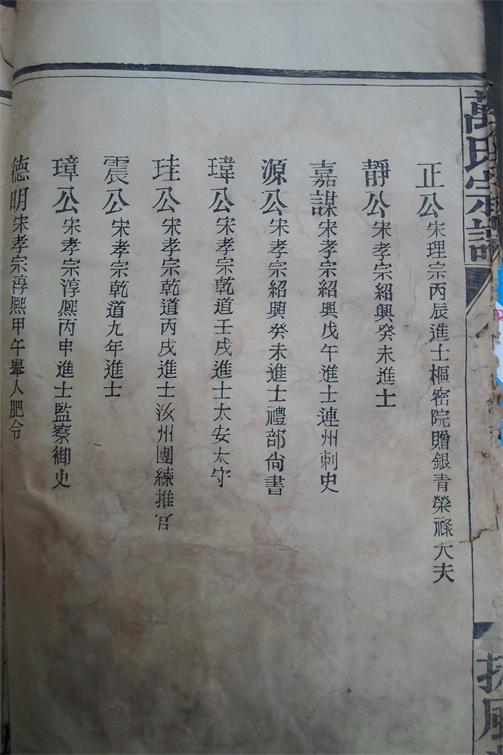 萬氏宗譜
正公宋理宗丙辰進士樞密院贈銀青榮祿大夫
靜公宋孝宗紹興癸未進士
嘉謀宋孝宗紹興戊午進士連州刺史
源公宋孝宗紹興癸未進士禮部尚書
瑋公宋孝宗乾道壬戌進士太安太守
珪公宋孝宗乾道丙戌進士汝州團練推官
震公宋孝宗乾道九年進士
璋公宋孝宗淳熈丙申進士監察御史
德明宋孝宗淳熈甲午舉人肥令
扶風